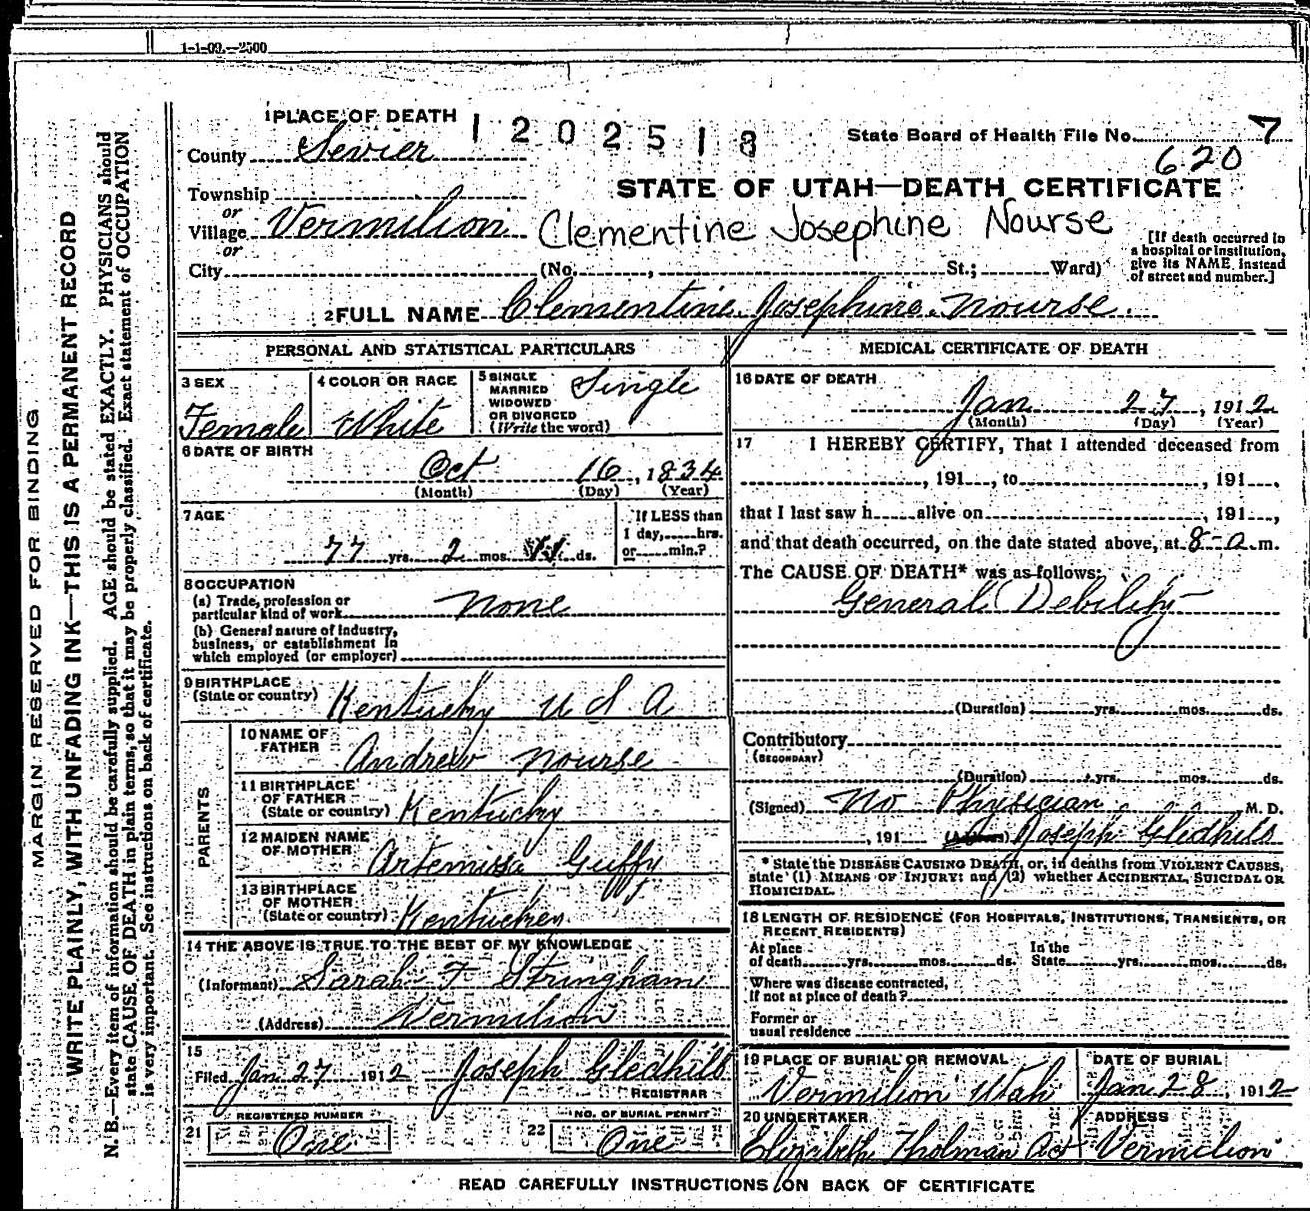 1-1-09.—2500
1 PLACE OF DEATH 1 2 0 2 5 1 3 State Board of Health File No. 7
County Sevier 620
Township STATE OF UTAH—DEATH CERTIFICATE
or
Village Vermilion Clementine Josephine Nourse
or
City (No. , St.; Ward)
[If death occurred in
a hospital or institution,
give its NAME instead
of street and number.]
2 FULL NAME Clementine Josephine Nourse.
PERSONAL AND STATISTICAL PARTICULARS
3 SEX
Female
4 COLOR OR RACE
White
5 SINGLE
MARRIED
WIDOWED
OR DIVORCED
(Write the word)
Single
6 DATE OF BIRTH
Oct 16, 1834
(Month) (Day) (Year)
7 AGE
77 yrs. 2 mos. 11 ds.
If LESS than
1 day, hrs.
or min.?
8 OCCUPATION
(a) Trade, profession or
particular kind of work None
(b) General nature of industry,
business, or establishment in
which employed (or employer)
9 BIRTHPLACE
(State or country) Kentucky U S A
PARENTS
10 NAME OF
FATHER Andrew Nourse
11 BIRTHPLACE
OF FATHER
(State or country) Kentucky
12 MAIDEN NAME
OF MOTHER Artemissa Guffy
13 BIRTHPLACE
OF MOTHER
(State or country) Kentucken
14 THE ABOVE IS TRUE TO THE BEST OF MY KNOWLEDGE
(Informant) Sarah F Stringham
(Address) Vermilion
15
Filed Jan. 27 1912 Joseph Gledhill
REGISTRAR
REGISTERED NUMBER
21 One
NO. OF BURIAL PERMIT
22 One
MEDICAL CERTIFICATE OF DEATH
16 DATE OF DEATH
Jan 27, 1912
(Month) (Day) (Year)
17 I HEREBY CERTIFY, That I attended deceased from
, 191 , to , 191 ,
that I last saw h alive on , 191 ,
and that death occurred, on the date stated above, at 8-a.m.
The CAUSE OF DEATH* was as follows:
General Debility
(Duration) yrs. mos. ds.
Contributory
(SECONDARY)
(Duration) yrs. mos. ds.
(Signed) No Physician M. D.
, 191 (Address) Joseph Gledhill
* State the DISEASE CAUSING DEATH, or, in deaths from VIOLENT CAUSES,
state (1) MEANS OF INJURY; and (2) whether ACCIDENTAL, SUICIDAL OR
HOMICIDAL.
18 LENGTH OF RESIDENCE (FOR HOSPITALS, INSTITUTIONS, TRANSIENTS, OR
RECENT RESIDENTS)
At place In the
of death yrs. mos. ds. State yrs. mos. ds.
Where was disease contracted,
If not at place of death?
Former or
usual residence
19 PLACE OF BURIAL OR REMOVAL
Vermilion Utah
DATE OF BURIAL
Jan. 28, 1912
20 UNDERTAKER
Elizabeth Tholman
ADDRESS
Vermilion
READ CAREFULLY INSTRUCTIONS ON BACK OF CERTIFICATE
MARGIN RESERVED FOR BINDING
WRITE PLAINLY, WITH UNFADING INK—THIS IS A PERMANENT RECORD
N. B.—Every item of information should be carefully supplied. AGE should be stated EXACTLY. PHYSICIANS should
state CAUSE OF DEATH in plain terms, so that it may be properly classified. Exact statement of OCCUPATION
is very important. See instructions on back of certificate.